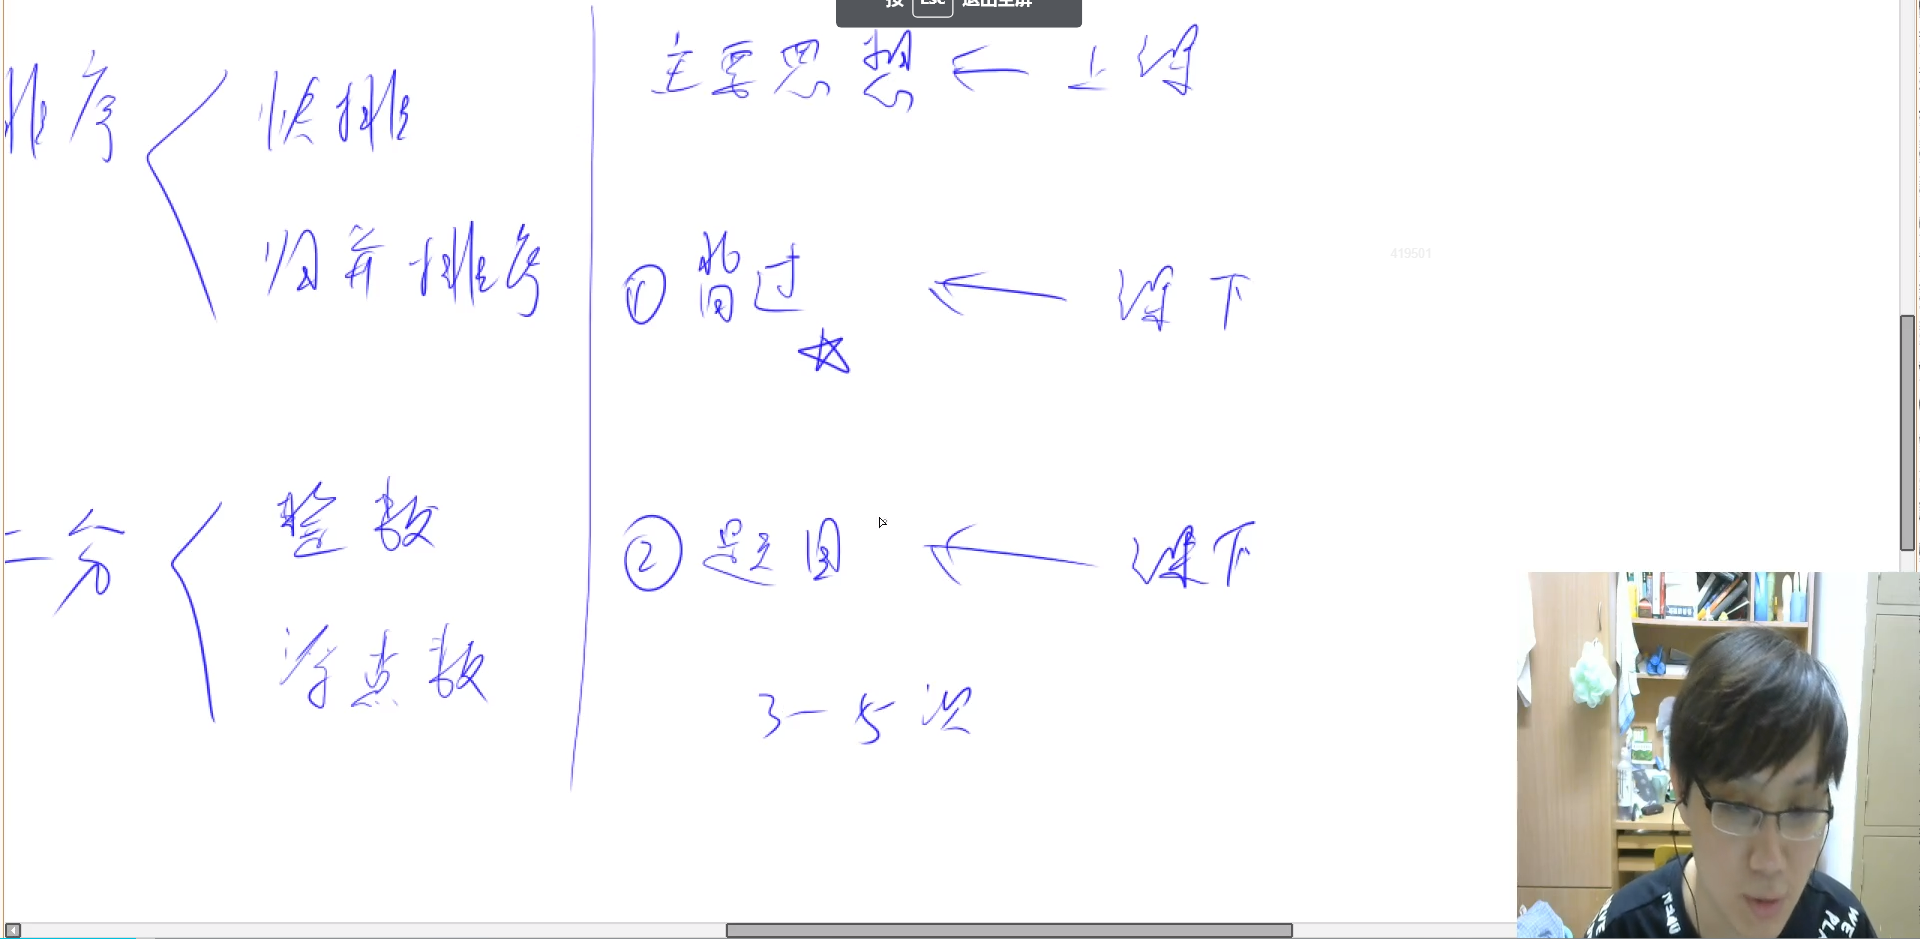 按 Esc 退出全屏
排序
快排
归并排序
二分
整数
浮点数
主要思想 ← 上课
① 背过 ← 课下
② 题目 ← 课下
3-5次
419501